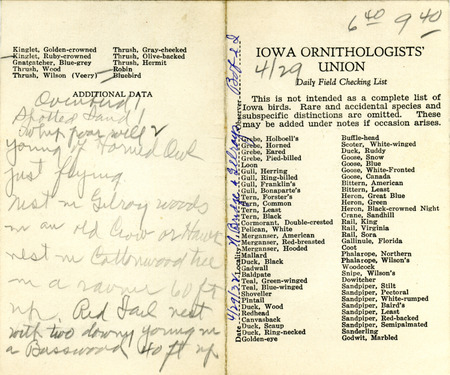 Kinglet, Golden-crowned
Kinglet, Ruby-crowned
Gnatcatcher, Blue-grey
Thrush, Wood
Thrush, Wilson (Veery)
Thrush, Gray-cheeked
Thrush, Olive-backed
Thrush, Hermit
Robin
Bluebird
ADDITIONAL DATA
Ovenbird 1
Spotted Sand
Whip poor will 2
young Horned Owl
just flying
nest in Gilroy woods
in an old Crow or Hawk
nest in Cottonwood tree
in a ravine 60 ft
up. Red Tail nest
with two downy young in
a Basswood 40 ft up
6 40 9 40
IOWA ORNITHOLOGISTS'
UNION
4/29
Daily Field Checking List
This is not intended as a complete list of
Iowa birds. Rare and accidental species and
subspecific distinctions are omitted. These
may be added under notes if occasion arises.
Date 4/29/2 Locality N. Bridge & Gilroys Observer
Grebe, Holboell's
Grebe, Horned
Grebe, Eared
Grebe, Pied-billed
Loon
Gull, Herring
Gull, Ring-billed
Gull, Franklin's
Gull, Bonaparte's
Tern, Forster's
Tern, Common
Tern, Least
Tern, Black
Cormorant, Double-crested
Pelican, White
Merganser, American
Merganser, Red-breasted
Merganser, Hooded
Mallard
Duck, Black
Gadwall
Baldpate
Teal, Green-winged
Teal, Blue-winged
Shoveller
Pintail
Duck, Wood
Redhead
Canvasback
Duck, Scaup
Duck, Ring-necked
Golden-eye
Buffle-head
Scoter, White-winged
Duck, Ruddy
Goose, Snow
Goose, Blue
Goose, White-Fronted
Goose, Canada
Bittern, American
Bittern, Least
Heron, Great Blue
Heron, Green
Heron, Black-crowned Night
Crane, Sandhill
Rail, King
Rail, Virginia
Rail, Sora
Gallinule, Florida
Coot
Phalarope, Northern
Phalarope, Wilson's
Woodcock
Snipe, Wilson's
Dowitcher
Sandpiper, Stilt
Sandpiper, Pectoral
Sandpiper, White-rumped
Sandpiper, Baird's
Sandpiper, Least
Sandpiper, Red-backed
Sandpiper, Semipalmated
Sanderling
Godwit, Marbled